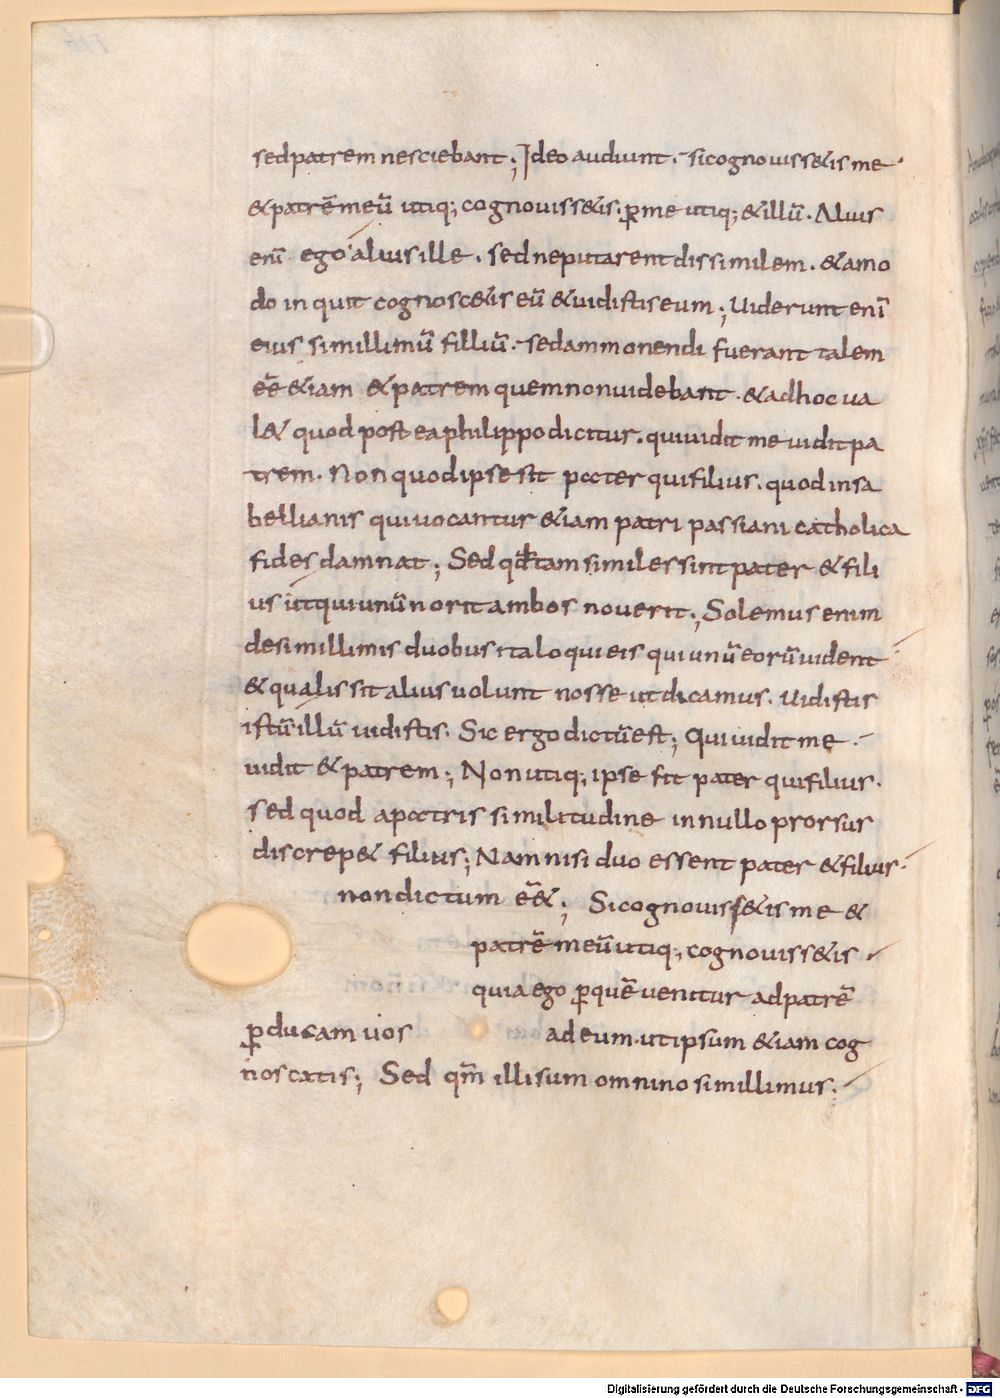 sed patrem nesciebant; Ideo audiunt. si cognovissetis me
& patrē meū utiq; cognoviss&is. p̄ me utiq; & illū. Alius
enī ego alius ille. sed ne putarent dissimilem. & amo
do inquit cognosc&is eū & vidistis eum; Viderunt enī
eius simillimū filliū. sed ammonendi fuerant talem
eē &iam & patrem quem non videbant. & ad hoc va
l& quod postea philippo dicitur. qui vidit me vidit pa
trem. Non quod ipse sit pater qui filius. quod in sa
bellianis qui vocantur &iam patri passiani catholica
fides damnat; Sed qđ tam similes sint pater & fili
us ut qui unū norit ambos noverit; Solemus enim
de simillimis duobus ita loqui eis qui unū eorū vident
& qualis sit alius volunt nosse ut dicamus. Vidistis
istū illū vidistis. Sic ergo dictū est; Qui vidit me
vidit & patrem; Non utiq; ipse sit pater qui filius.
sed quod a patris similitudine in nullo prorsus
discrep& filius; Nam nisi duo essent pater & filius
non dictum eē&; Si cognoviss&is me &
patrē meū utiq; cognoviss&is
quia ego p̄ quē venitur ad patrē
p̄ducam vos ad eum. ut ipsum &iam cog
noscatis; Sed qm̄ illi sum omnino simillimus.
Digitalisierung gefördert durch die Deutsche Forschungsgemeinschaft - DFG